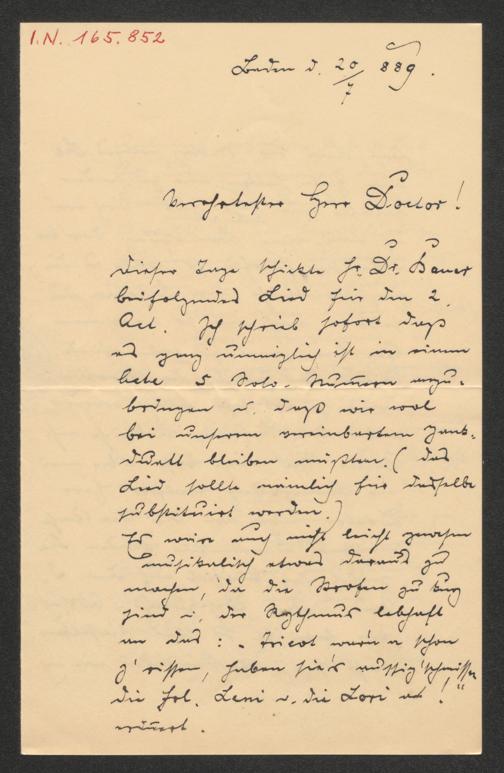 I.N. 165.852
Baden d. 20/7 889.
Verehrtester Herr Doctor!
Dieser Tage schickte Hr. Dr. Bauer
beifolgendes Lied für den 2.
Act. Ich schrieb sofort daß
es ganz unmöglich ist in einem
Acte 5 Solo-Nummern anzu-
bringen u. daß wir wol
bei unserem vereinbarten Zank-
duett bleiben müßten. (das
Lied sollte nämlich für dasselbe
substituirt werden.)
Es wäre auch nicht leicht gewesen
musikalisch etwas daraus zu
machen, da die Strofen zu kurz
sind u. der Rythmus lebhaft
an das: „Tricot war'n a schon
z'rissen, haben sie's aussig'schmissen
die Frl. Leni u. die Lori a!"
erinnert.